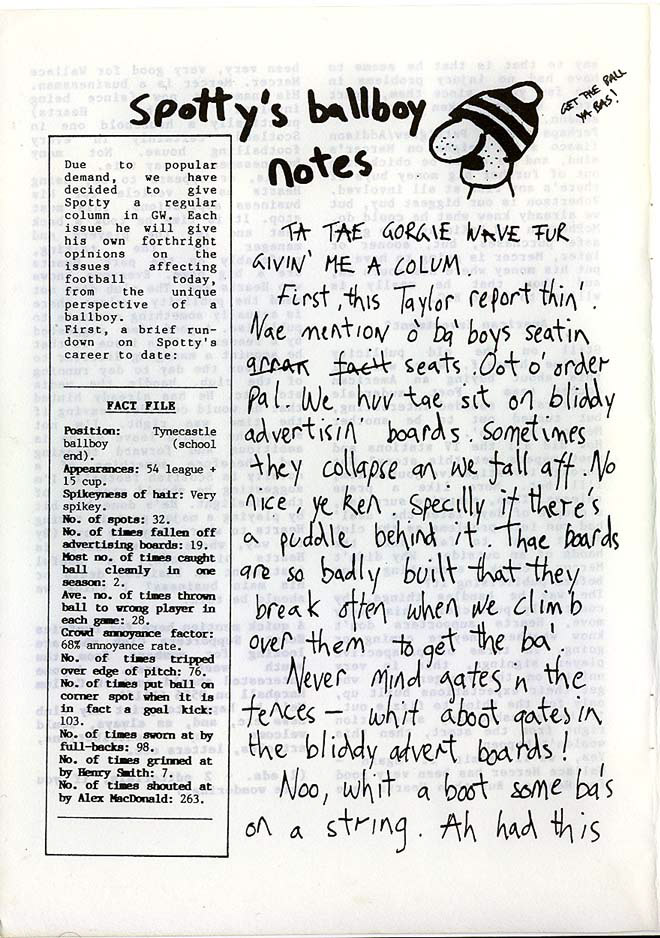 spotty's ballboy
notes
GET THE BALL
YA BAS!
Due to popular
demand, we have
decided to give
Spotty a regular
column in GW. Each
issue he will give
his own forthright
opinions on the
issues affecting
football today,
from the unique
perspective of a
ballboy.
First, a brief run-
down on Spotty's
career to date:
FACT FILE
Position: Tynecastle
ballboy (school
end).
Appearances: 54 league +
15 cup.
Spikeyness of hair: Very
spikey.
No. of spots: 32.
No. of times fallen off
advertising boards: 19.
Most no. of times caught
ball cleanly in one
season: 2.
Ave. no. of times thrown
ball to wrong player in
each game: 28.
Crowd annoyance factor:
68% annoyance rate.
No. of times tripped
over edge of pitch: 76.
No. of times put ball on
corner spot when it is
in fact a goal kick:
103.
No. of times sworn at by
full-backs: 98.
No. of times grinned at
by Henry Smith: 7.
No. of times shouted at
by Alex MacDonald: 263.
TA TAE GORGIE WAVE FUR
GIVIN' ME A COLUM.
First, this Taylor report thin'.
Nae mention o' ba' boys seatin
seats. Oot o' order
pal. We huv tae sit on bliddy
advertisin' boards. Sometimes
they collapse an we fall aff. No
nice, ye ken. Specilly if there's
a puddle behind it. Thae boards
are so badly built that they
break often when we climb
over them to get the ba'.
Never mind gates in the
fences – whit aboot gates in
the bliddy advert boards!
Noo, whit a boot some ba's
on a string. Ah had this